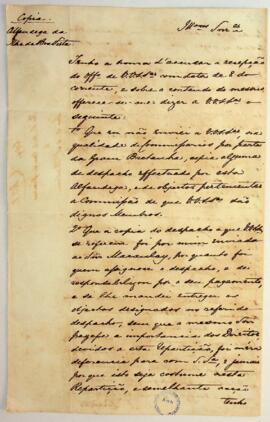 Copia
Illmos Snres
Alfandega da
Ilha da Boa Vista
Tenho a honra d'accusar a recepção
do Offº de V.V.Sas com data de 8 do
corrente, e sobre o contheudo do mesmo
offerece-se-me dizer a V.V.Sas o
seguinte:
1º Que eu não enviei a V.V.Sas na
qualidade de Commissarios por parte
da Gram Bretanha, copia alguma
de despacho effectuado por esta
Alfandega, e de objectos pertencentes
a Commissão de que V.V.Sas são
dignos Membros.
2º Que a copia do despacho a que V.V.Sas
se referem foi por mim enviada
ao Snr Macaulay, por quanto foi
quem assignou o despacho, e se
responsabilizou por o seu pagamento,
e se lhe mandou entregar os
objectos designados no referido
despacho, sem que o mesmo Snr
pagasse a importancia dos Direitos
devidos a esta Repartição, foi mera
deferencia para com S. Sa, e jamais
por que isto seja costume nesta
Repartição, e semelhante acção
tenho